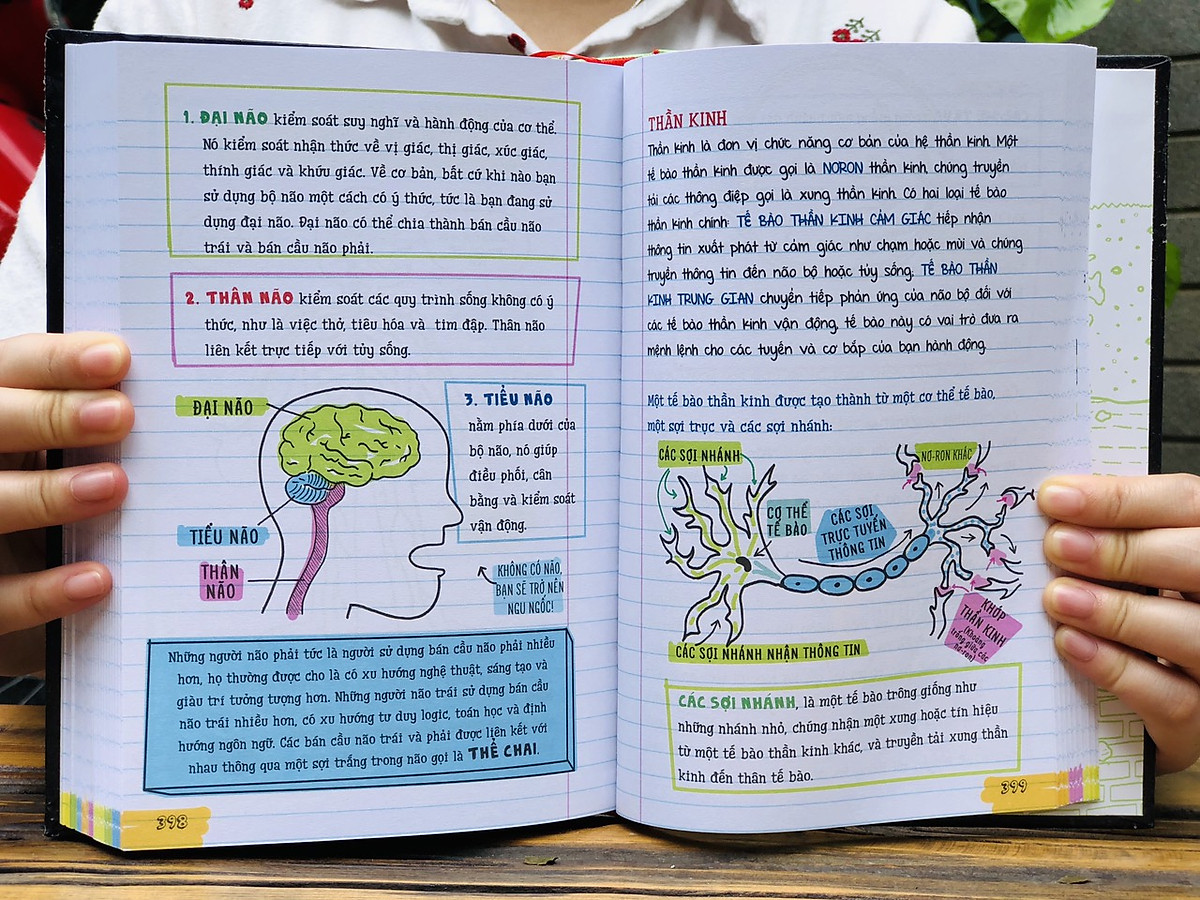 1. ĐẠI NÃO kiểm soát suy nghĩ và hành động của cơ thể.
Nó kiểm soát nhận thức về vị giác, thị giác, xúc giác,
thính giác và khứu giác. Về cơ bản, bất cứ khi nào bạn
sử dụng bộ não một cách có ý thức, tức là bạn đang sử
dụng đại não. Đại não có thể chia thành bán cầu não
trái và bán cầu não phải.
2. THÂN NÃO kiểm soát các quy trình sống không có ý
thức, như là việc thở, tiêu hóa và tim đập. Thân não
liên kết trực tiếp với tủy sống.
ĐẠI NÃO
TIỂU NÃO
THÂN
NÃO
3. TIỂU NÃO
nằm phía dưới của
bộ não, nó giúp
điều phối, cân
bằng và kiểm soát
vận động.
KHÔNG CÓ NÃO,
BẠN SẼ TRỞ NÊN
NGU NGỐC!
Những người não phải tức là người sử dụng bán cầu não phải nhiều
hơn, họ thường được cho là có xu hướng nghệ thuật, sáng tạo và
giàu trí tưởng tượng hơn. Những người não trái sử dụng bán cầu
não trái nhiều hơn, có xu hướng tư duy logic, toán học và định
hướng ngôn ngữ. Các bán cầu não trái và phải được liên kết với
nhau thông qua một sợi trắng trong não gọi là THỂ CHAI.
398
THẦN KINH
Thần kinh là đơn vị chức năng cơ bản của hệ thần kinh. Một
tế bào thần kinh được gọi là NORON thần kinh, chúng truyền
tải các thông điệp gọi là xung thần kinh. Có hai loại tế bào
thần kinh chính: TẾ BÀO THẦN KINH CẢM GIÁC tiếp nhận
thông tin xuất phát từ cảm giác như chạm hoặc mùi và chúng
truyền thông tin đến não bộ hoặc tủy sống; TẾ BÀO THẦN
KINH TRUNG GIAN chuyển tiếp phản ứng của não bộ đối với
các tế bào thần kinh vận động, tế bào này có vai trò đưa ra
mệnh lệnh cho các tuyến và cơ bắp của bạn hành động.
Một tế bào thần kinh được tạo thành từ một cơ thể tế bào,
một sợi trục và các sợi nhánh:
CÁC SỢI NHÁNH
CƠ THỂ
TẾ BÀO
CÁC SỢI
TRỤC TUYẾN
THÔNG TIN
NƠ-RON KHÁC
KHỚP
THẦN KINH
(Khoảng
trống giữa các
nơ-ron)
CÁC SỢI NHÁNH NHẬN THÔNG TIN
CÁC SỢI NHÁNH, là một tế bào trông giống như
những nhánh nhỏ, chúng nhận một xung hoặc tín hiệu
từ một tế bào thần kinh khác, và truyền tải xung thần
kinh đến thân tế bào.
399